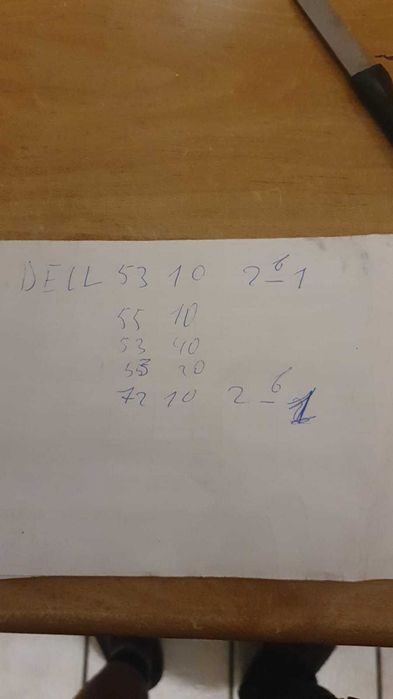 DELL 53 10 2-6 1
55 10
53 40
55 20
72 10 2-6 1